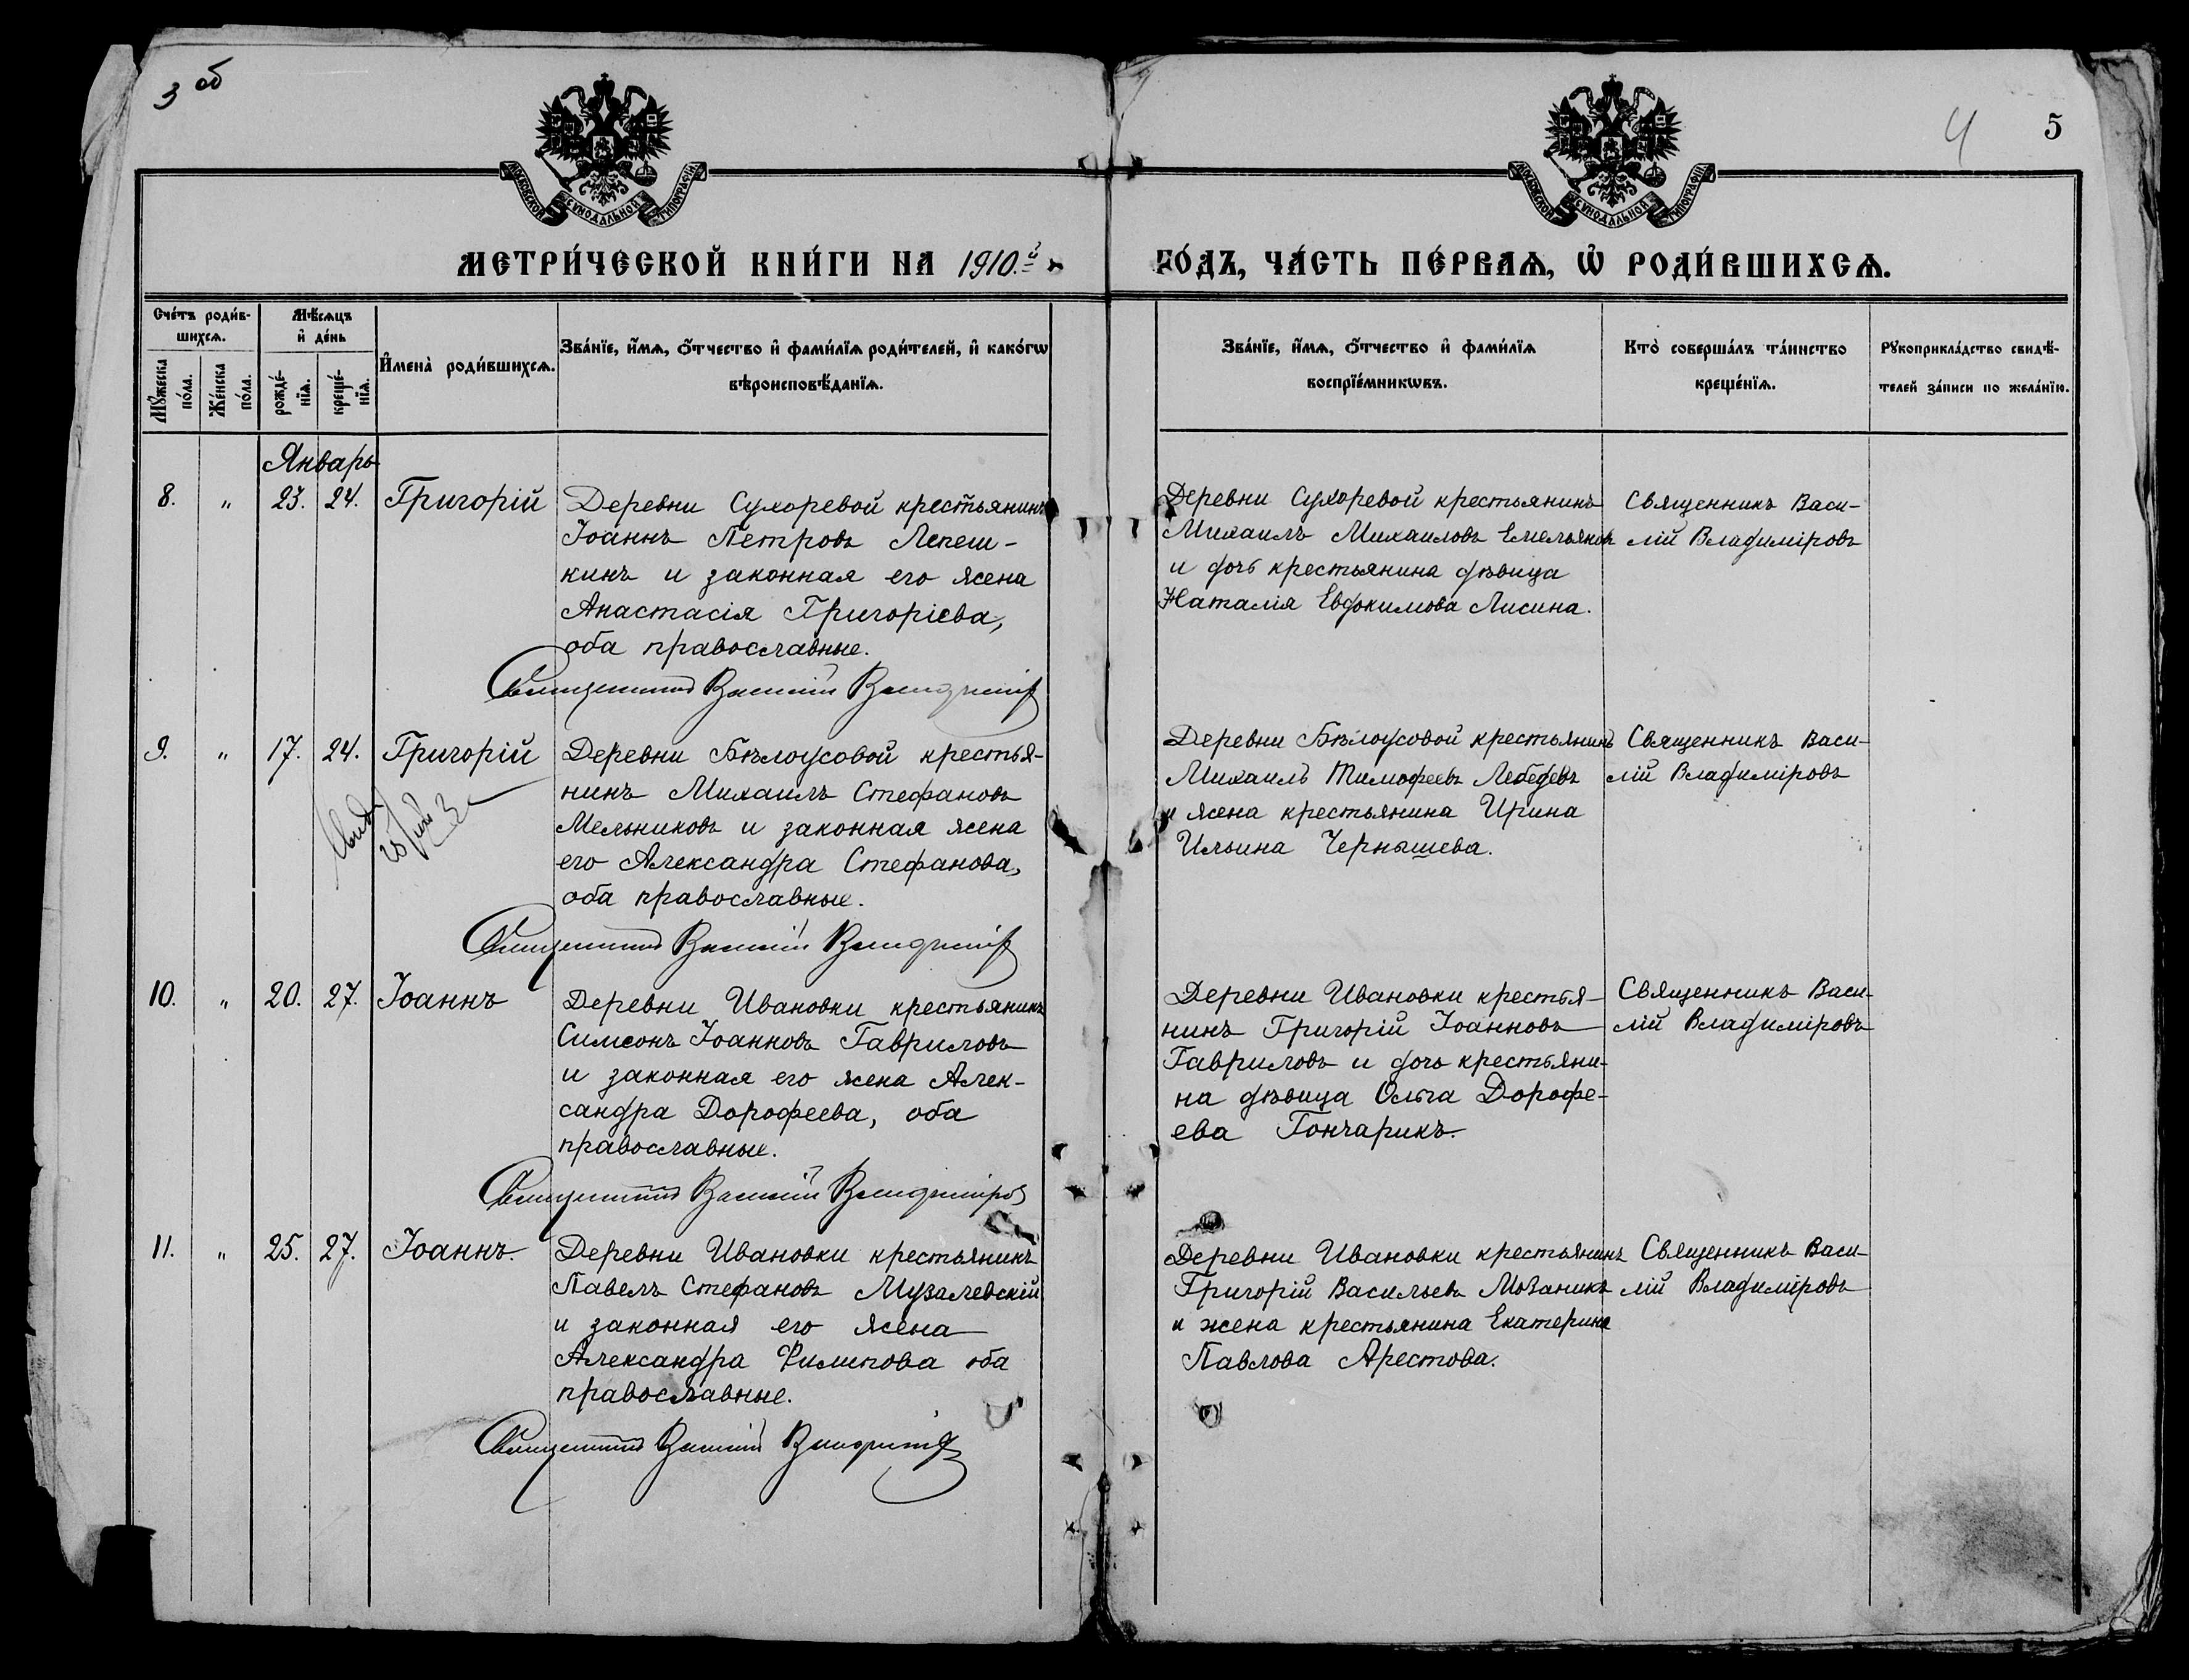 3 об
4
5
МОСКОВСКОЙ СѴНОДАЛЬНОЙ ТИПОГРАФІИ
МОСКОВСКОЙ СѴНОДАЛЬНОЙ ТИПОГРАФІИ
МЕТРИ́ЧЕСКОЙ КНИ́ГИ НА 1910.й ГО́ДЪ, ЧА́СТЬ ПЕ́РВАѦ, Ѡ҆ РОДИ́ВШИХСѦ.
Сче́тъ роди́в-
шихсѧ.
Мꙋ́жеска по́ла.
Же́нска по́ла.
Мѣ́сѧцъ
и҆ де́нь
рожде́-
нїѧ.
креще́-
нїѧ.
И҆мена̀ роди́вшихсѧ.
Зва́нїе, и҆́мѧ, ѻ҆́тчество и҆ фами́лїѧ роди́телей, и҆ како́гѡ
вѣроисповѣ́данїѧ.
Зва́нїе, и҆́мѧ, ѻ҆́тчество и҆ фами́лїѧ
воспрїе́мникѡвъ.
Кто̀ соверша́лъ та́инство
креще́нїѧ.
Рꙋкоприкла́дство свидѣ́-
телей за́писи по жела́нїю.
Январь
8. " 23. 24. Григорій
Деревни Сухоревой крестьянинъ
Іоаннъ Петровъ Лепеш-
кинъ и законная его жена
Анастасія Григоріева,
оба православные.
Священникъ Василій Владиміровъ
Деревни Сухоревой крестьянинъ
Михаилъ Михаиловъ Емельяновъ
и дочь крестьянина дѣвица
Наталія Евдокимова Лисина.
Священникъ Васи-
лій Владиміровъ
9. " 17. 24. Григорій
Деревни Бѣлоусовой крестья-
нинъ Михаилъ Стефановъ
Мельниковъ и законная жена
его Александра Стефанова,
оба православные.
Священникъ Василій Владиміровъ
Деревни Бѣлоусовой крестьянинъ
Михаилъ Тимофеевъ Лебедевъ
и жена крестьянина Ирина
Ильина Чернышева.
Священникъ Васи-
лій Владиміровъ
10. " 20. 27. Іоаннъ
Деревни Ивановки крестьянинъ
Симеонъ Іоанновъ Гавриловъ
и законная его жена Алек-
сандра Дорофеева, оба
православные.
Священникъ Василій Владиміровъ
Деревни Ивановки крестья-
нинъ Григорій Іоанновъ
Гавриловъ и дочь крестьяни-
на дѣвица Ольга Дорофе-
ева Гончарикъ.
Священникъ Васи-
лій Владиміровъ
11. " 25. 27. Іоаннъ.
Деревни Ивановки крестьянинъ
Павелъ Стефановъ Музалевскій
и законная его жена
Александра Филипова оба
православные.
Священникъ Василій Владиміровъ
Деревни Ивановки крестьянинъ
Григорій Васильевъ
и жена крестьянина Екатерина
Павлова Арестова.
Священникъ Васи-
лій Владиміровъ